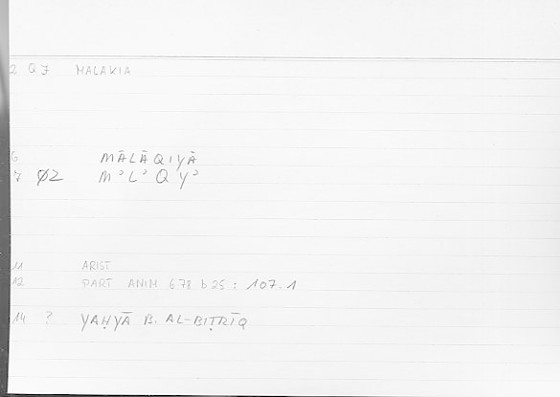 2 Q7 MALAKIA
6 MĀLĀQIYĀ
7 Ø2 MʾLʾQYʾ
11 ARIST
12 PART ANIM 678 b 25 : 107.1
14 ? YAḤYĀ B. AL-BIṬRĪQ